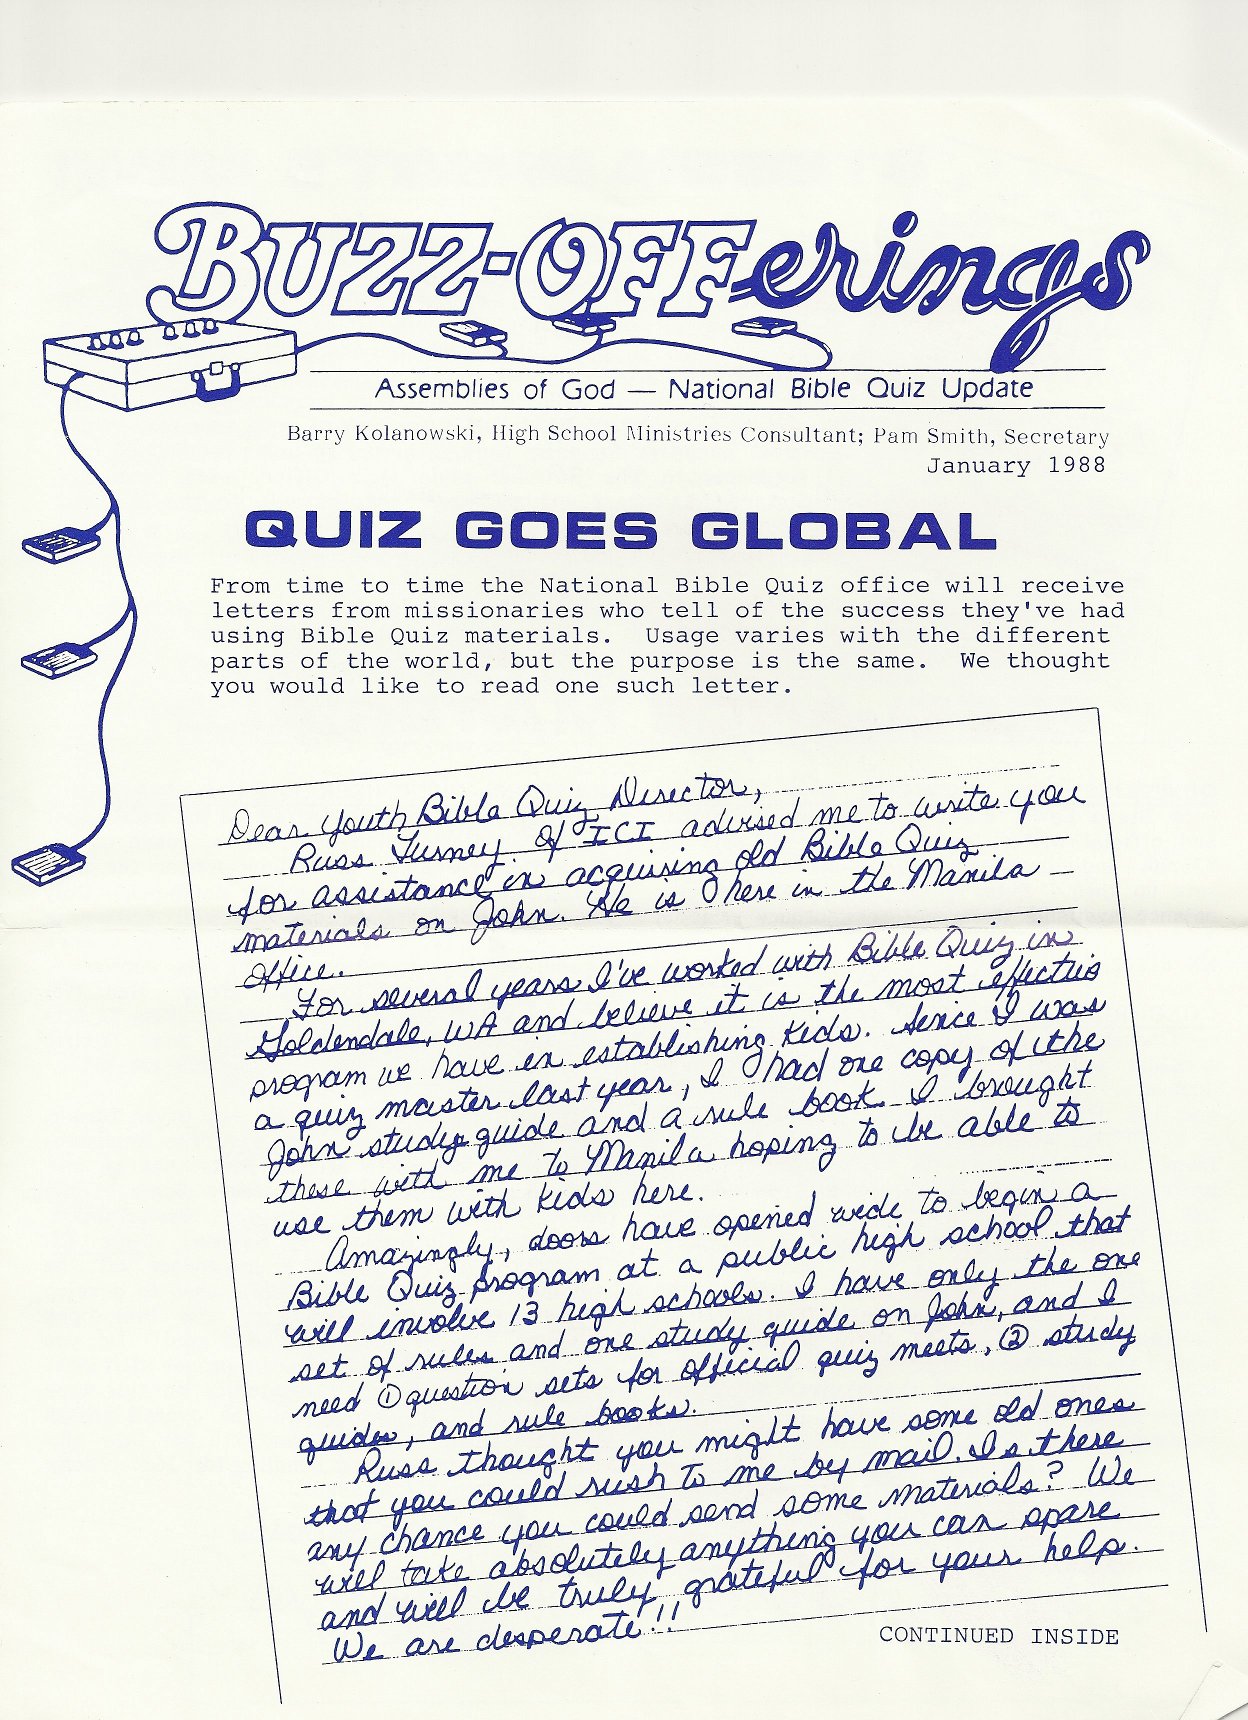 BUZZ-OFFerings
Assemblies of God — National Bible Quiz Update
Barry Kolanowski, High School Ministries Consultant; Pam Smith, Secretary
January 1988
QUIZ GOES GLOBAL
From time to time the National Bible Quiz office will receive
letters from missionaries who tell of the success they've had
using Bible Quiz materials. Usage varies with the different
parts of the world, but the purpose is the same. We thought
you would like to read one such letter.
Dear Youth Bible Quiz Director,
Russ Turney of ICI advised me to write you
for assistance in acquiring old Bible Quiz
materials on John. He is here in the Manila
office.
For several years I've worked with Bible Quiz in
Goldendale, WA and believe it is the most effective
program we have in establishing kids. Since I was
a quiz master last year, I had one copy of the
John study guide and a rule book. I brought
these with me to Manila hoping to be able to
use them with kids here.
Amazingly, doors have opened wide to begin a
Bible Quiz program at a public high school that
will involve 13 high schools. I have only the one
set of rules and one study guide on John, and I
need ① question sets for official quiz meets, ② study
guides, and rule books.
Russ thought you might have some old ones
that you could rush to me by mail. Is there
any chance you could send some materials? We
will take absolutely anything you can spare
and will be truly grateful for your help.
We are desperate!!
CONTINUED INSIDE